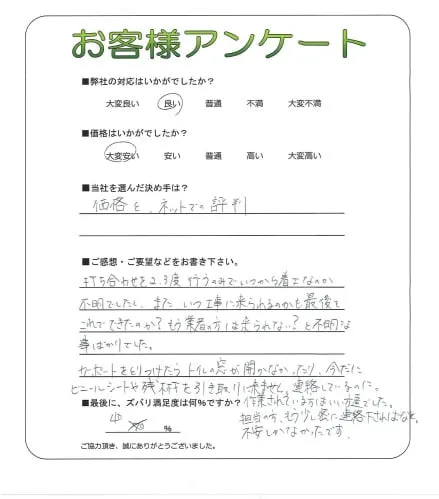 お客様アンケート
■弊社の対応はいかがでしたか?
大変良い 良い 普通 不満 大変不満
■価格はいかがでしたか?
大変安い 安い 普通 高い 大変高い
■当社を選んだ決め手は?
価格と、ネットでの評判
■ご感想・ご要望などをお書き下さい。
打ち合わせを2.3度行うのみでいつから着工なのか
不明でしたし、また いつ工事に来られるのかも最後も
これでできたのか?もう業者の方は来られない?と不明な
事ばかりでした。
カーポートをとりつけたらトイレの窓が開かなかったり、今だに
ビニールシートや残材を引き取りに来ません。連絡しているのに。
■最後に、ズバリ満足度は何%ですか?
作業されている方はいい方達でした。
担当の方、もう少し密に連絡下さればなと。
不安しかなかったです。
40 %
ご協力頂き、誠にありがとうございました。